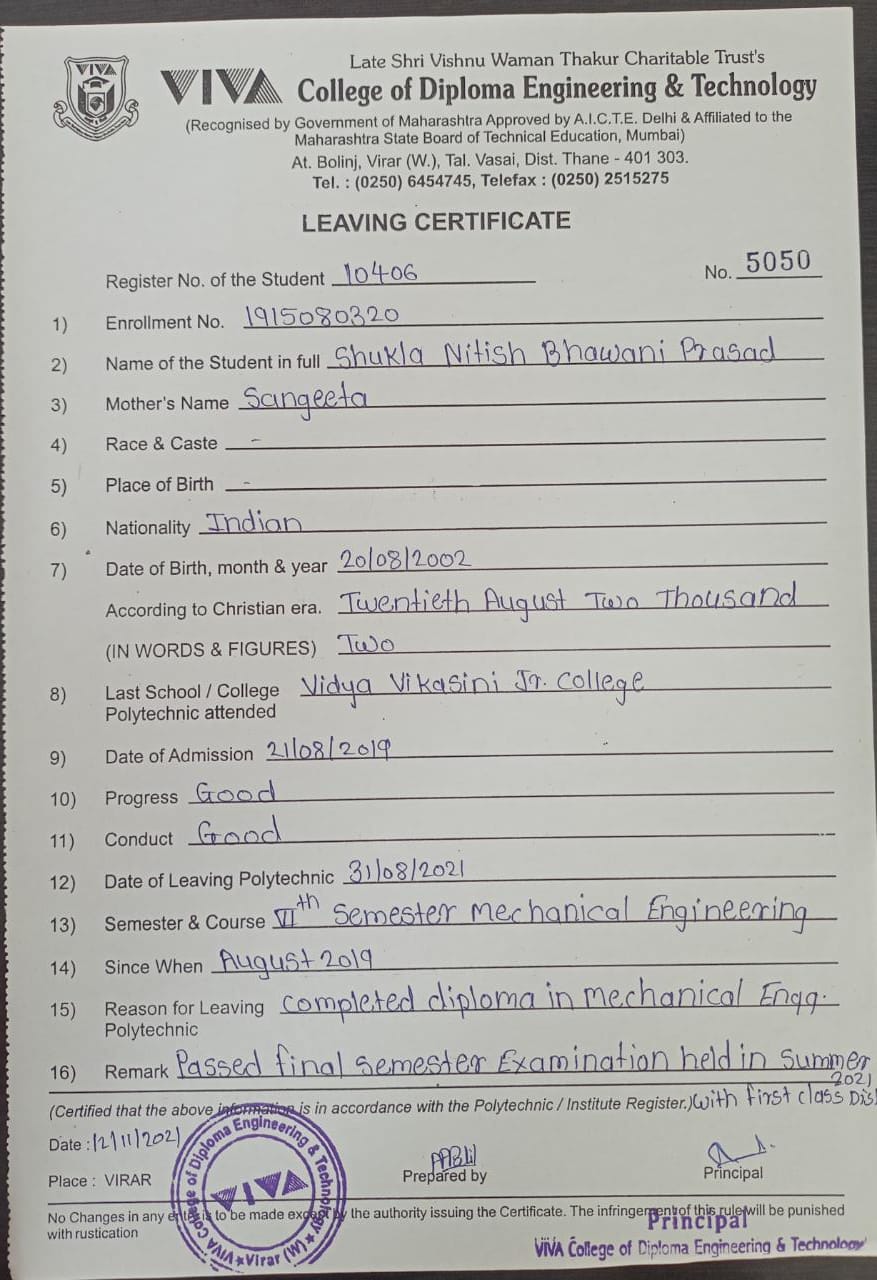 VIVA
Late Shri Vishnu Waman Thakur Charitable Trust's
VIVA College of Diploma Engineering & Technology
(Recognised by Government of Maharashtra Approved by A.I.C.T.E. Delhi & Affiliated to the
Maharashtra State Board of Technical Education, Mumbai)
At. Bolinj, Virar (W.), Tal. Vasai, Dist. Thane - 401 303.
Tel. : (0250) 6454745, Telefax : (0250) 2515275
LEAVING CERTIFICATE
Register No. of the Student 10406 No. 5050
1) Enrollment No. 1915080320
2) Name of the Student in full Shukla Nitish Bhawani Prasad
3) Mother's Name Sangeeta
4) Race & Caste -
5) Place of Birth -
6) Nationality Indian
7) Date of Birth, month & year 20/08/2002
According to Christian era. Twentieth August Two Thousand
(IN WORDS & FIGURES) Two
8) Last School / College Vidya Vikasini Jr. College
Polytechnic attended
9) Date of Admission 21/08/2019
10) Progress Good
11) Conduct Good
12) Date of Leaving Polytechnic 31/08/2021
13) Semester & Course VIth Semester Mechanical Engineering
14) Since When August 2019
15) Reason for Leaving completed diploma in mechanical Engg.
Polytechnic
16) Remark Passed final semester Examination held in summer
2021
(Certified that the above information is in accordance with the Polytechnic / Institute Register.) With first class Dis
Date : 12/11/2021
Place : VIRAR
Prepared by
Principal
VIVA College of Diploma Engineering & Technology
VIVA
Virar (W)
No Changes in any entry is to be made except by the authority issuing the Certificate. The infringement of this rule will be punished
with rustication
Principal
VIVA College of Diploma Engineering & Technology